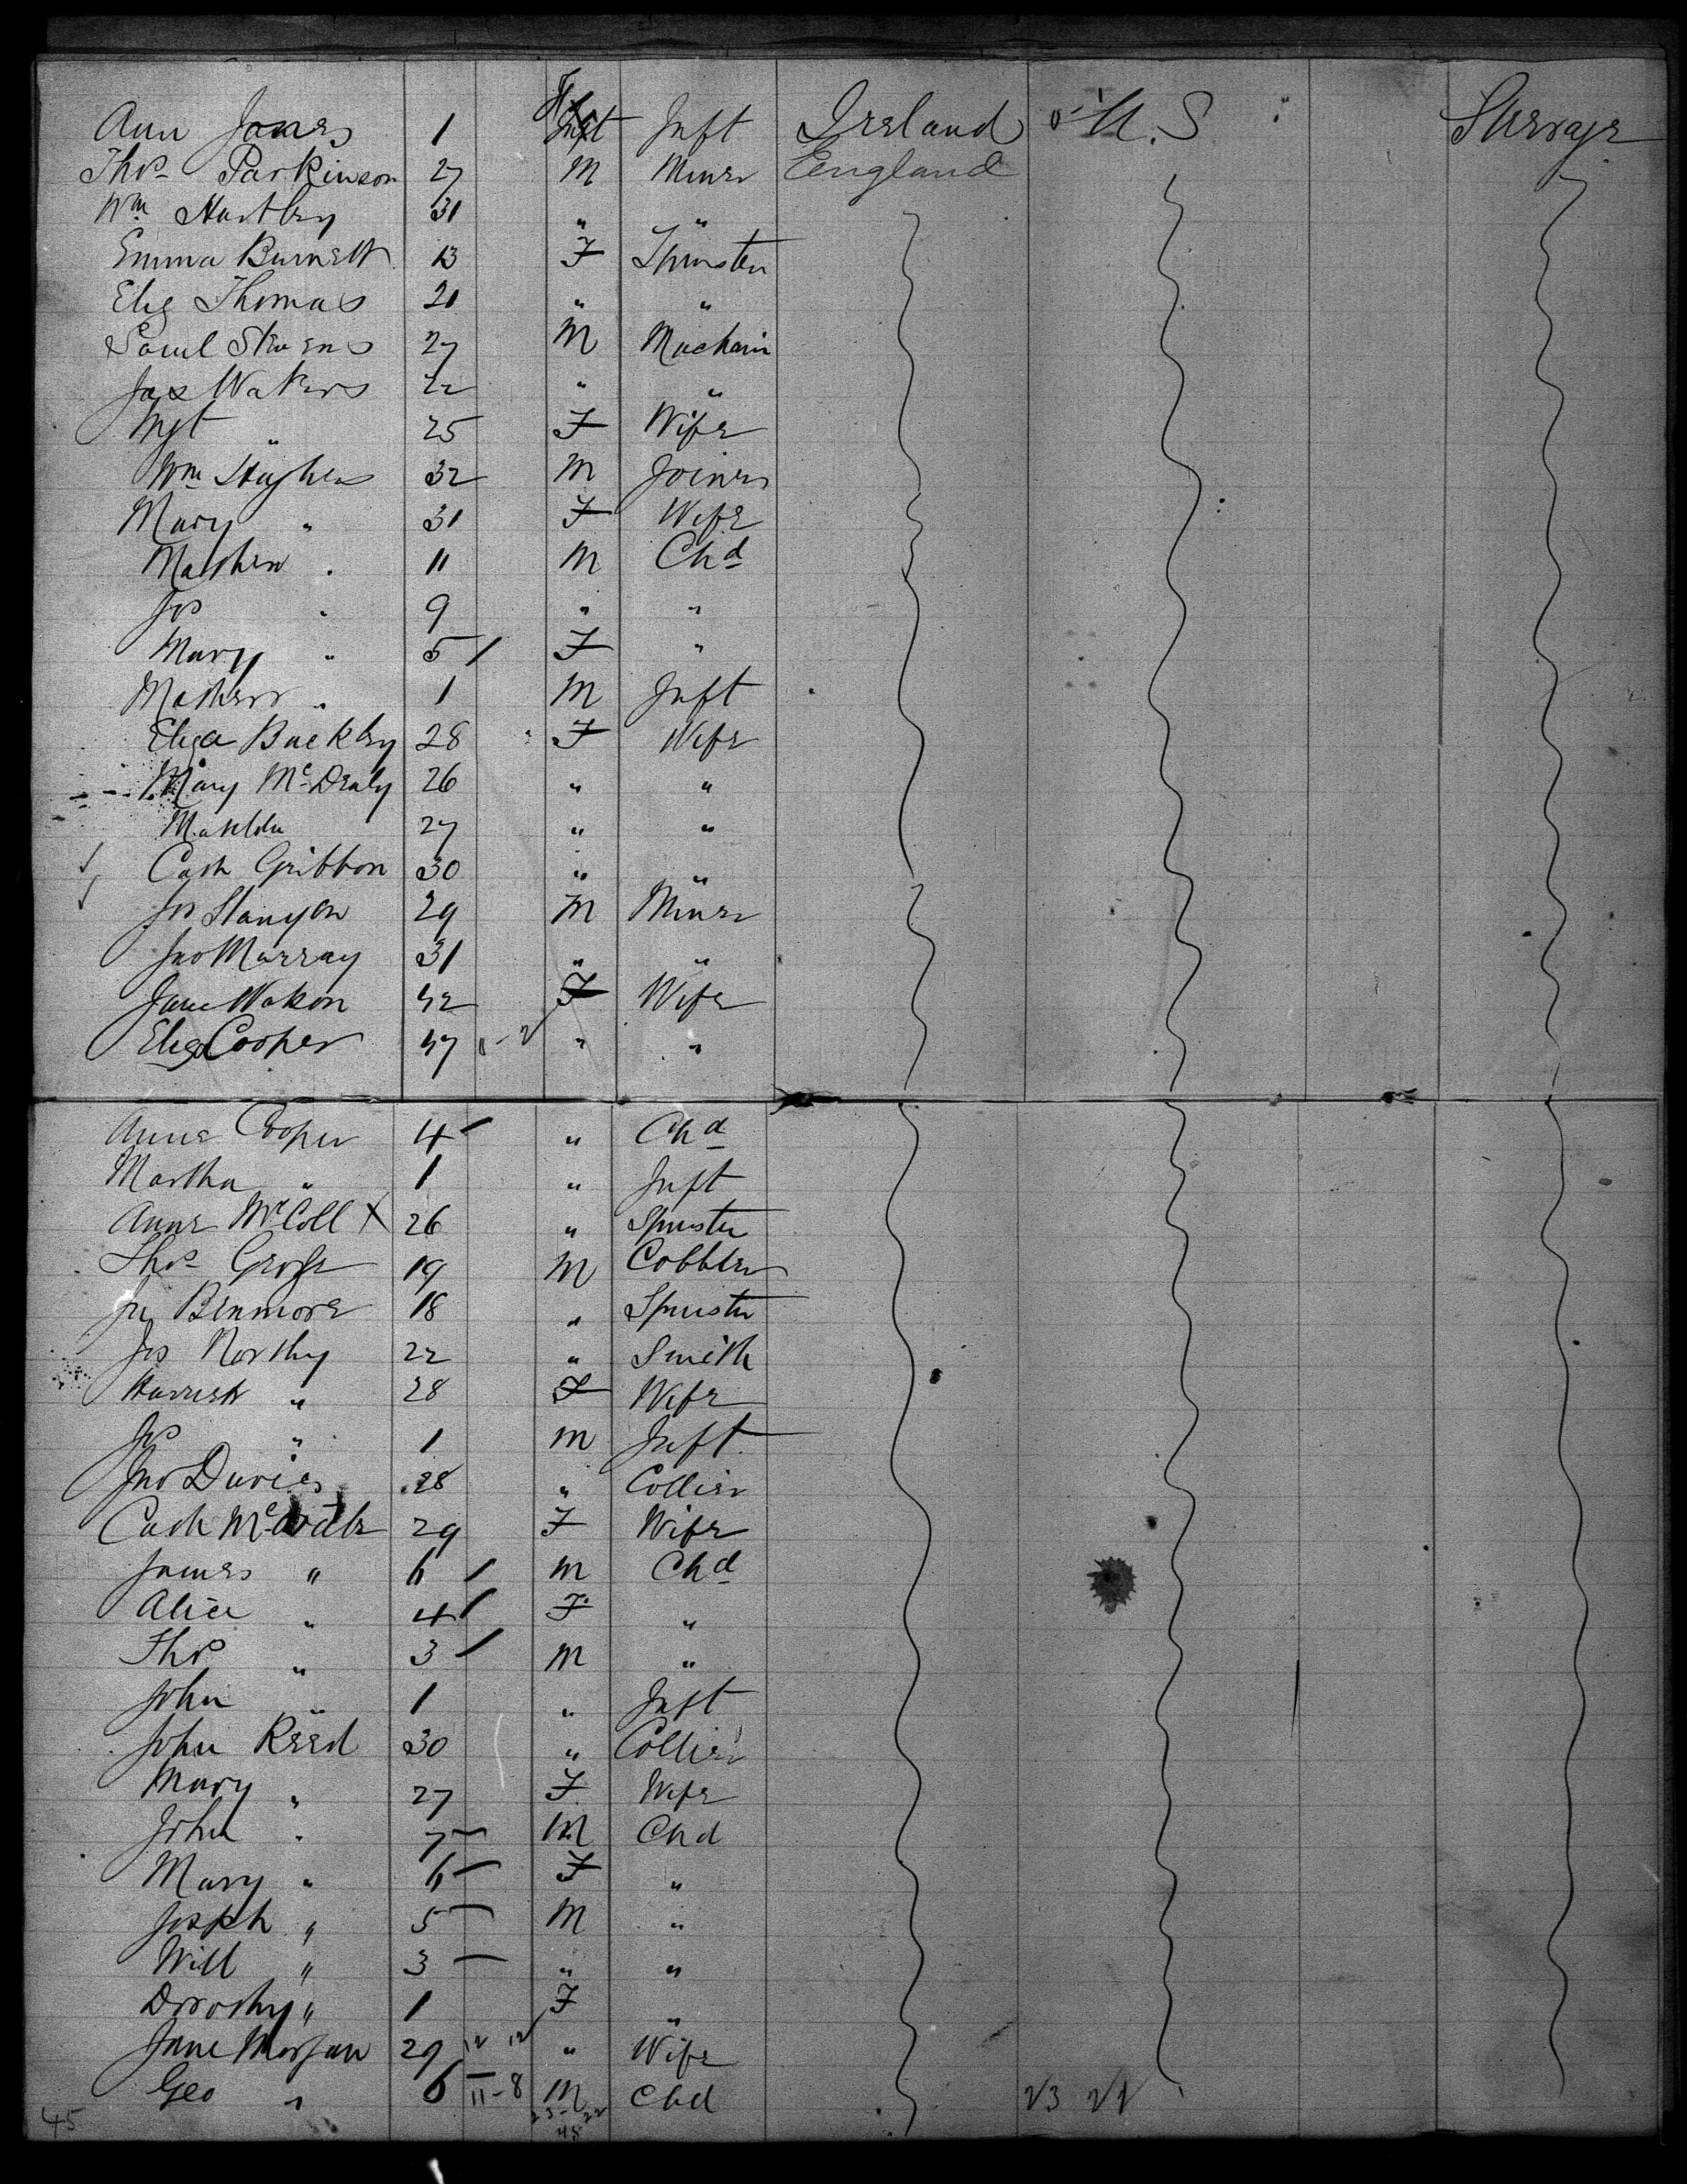 Ann Jones 1 F Inft Ireland U.S Steerage
Thos Parkinson 27 M Miner England
Wm Hartley 31 " "
Emma Burnett 13 F Spinster
Eliz Thomas 20 " "
Saml Stevens 27 M Mechanic
Jas Waters 22 " "
Mgt " 25 F Wife
Wm Hughes 32 M Joiner
Mary " 31 F Wife
Mathew " 11 M Chd
Jos " 9 " "
Mary " 5 F "
1 M Inft
Eliza Buckley 28 F Wife
Mary 26 " "
Matilda 27 " "
Cath Gribbon 30 " "
Jos Stanyon 29 M Miner
Jno Murray 31 " "
Jane Watson 42 F Wife
Eliza Cooper 47 " "
Anne Cooper 4 " Chd
Martha " 1 " Inft
Anne McColl X 26 " Spinster
Thos George 19 M Cobbler
Benmore 18 " Spinster
Jos Northy 22 " Smith
Harriet " 28 F Wife
Jos " 1 M Inft
Jno Davies 28 " Collier
Cath 29 F Wife
James " 6 M Chd
Alice " 4 F "
Thos " 3 M "
John " 1 " Inft
John Reed 30 " Collier
Mary " 27 F Wife
John " 7 M Chd
Mary " 6 F "
Joseph " 5 M "
Will " 3 " "
Dorothy " 1 F "
Jane Morgan 29 12 12 " Wife
Geo " 6 11-8 M Chd 23 22
45 23-22
45